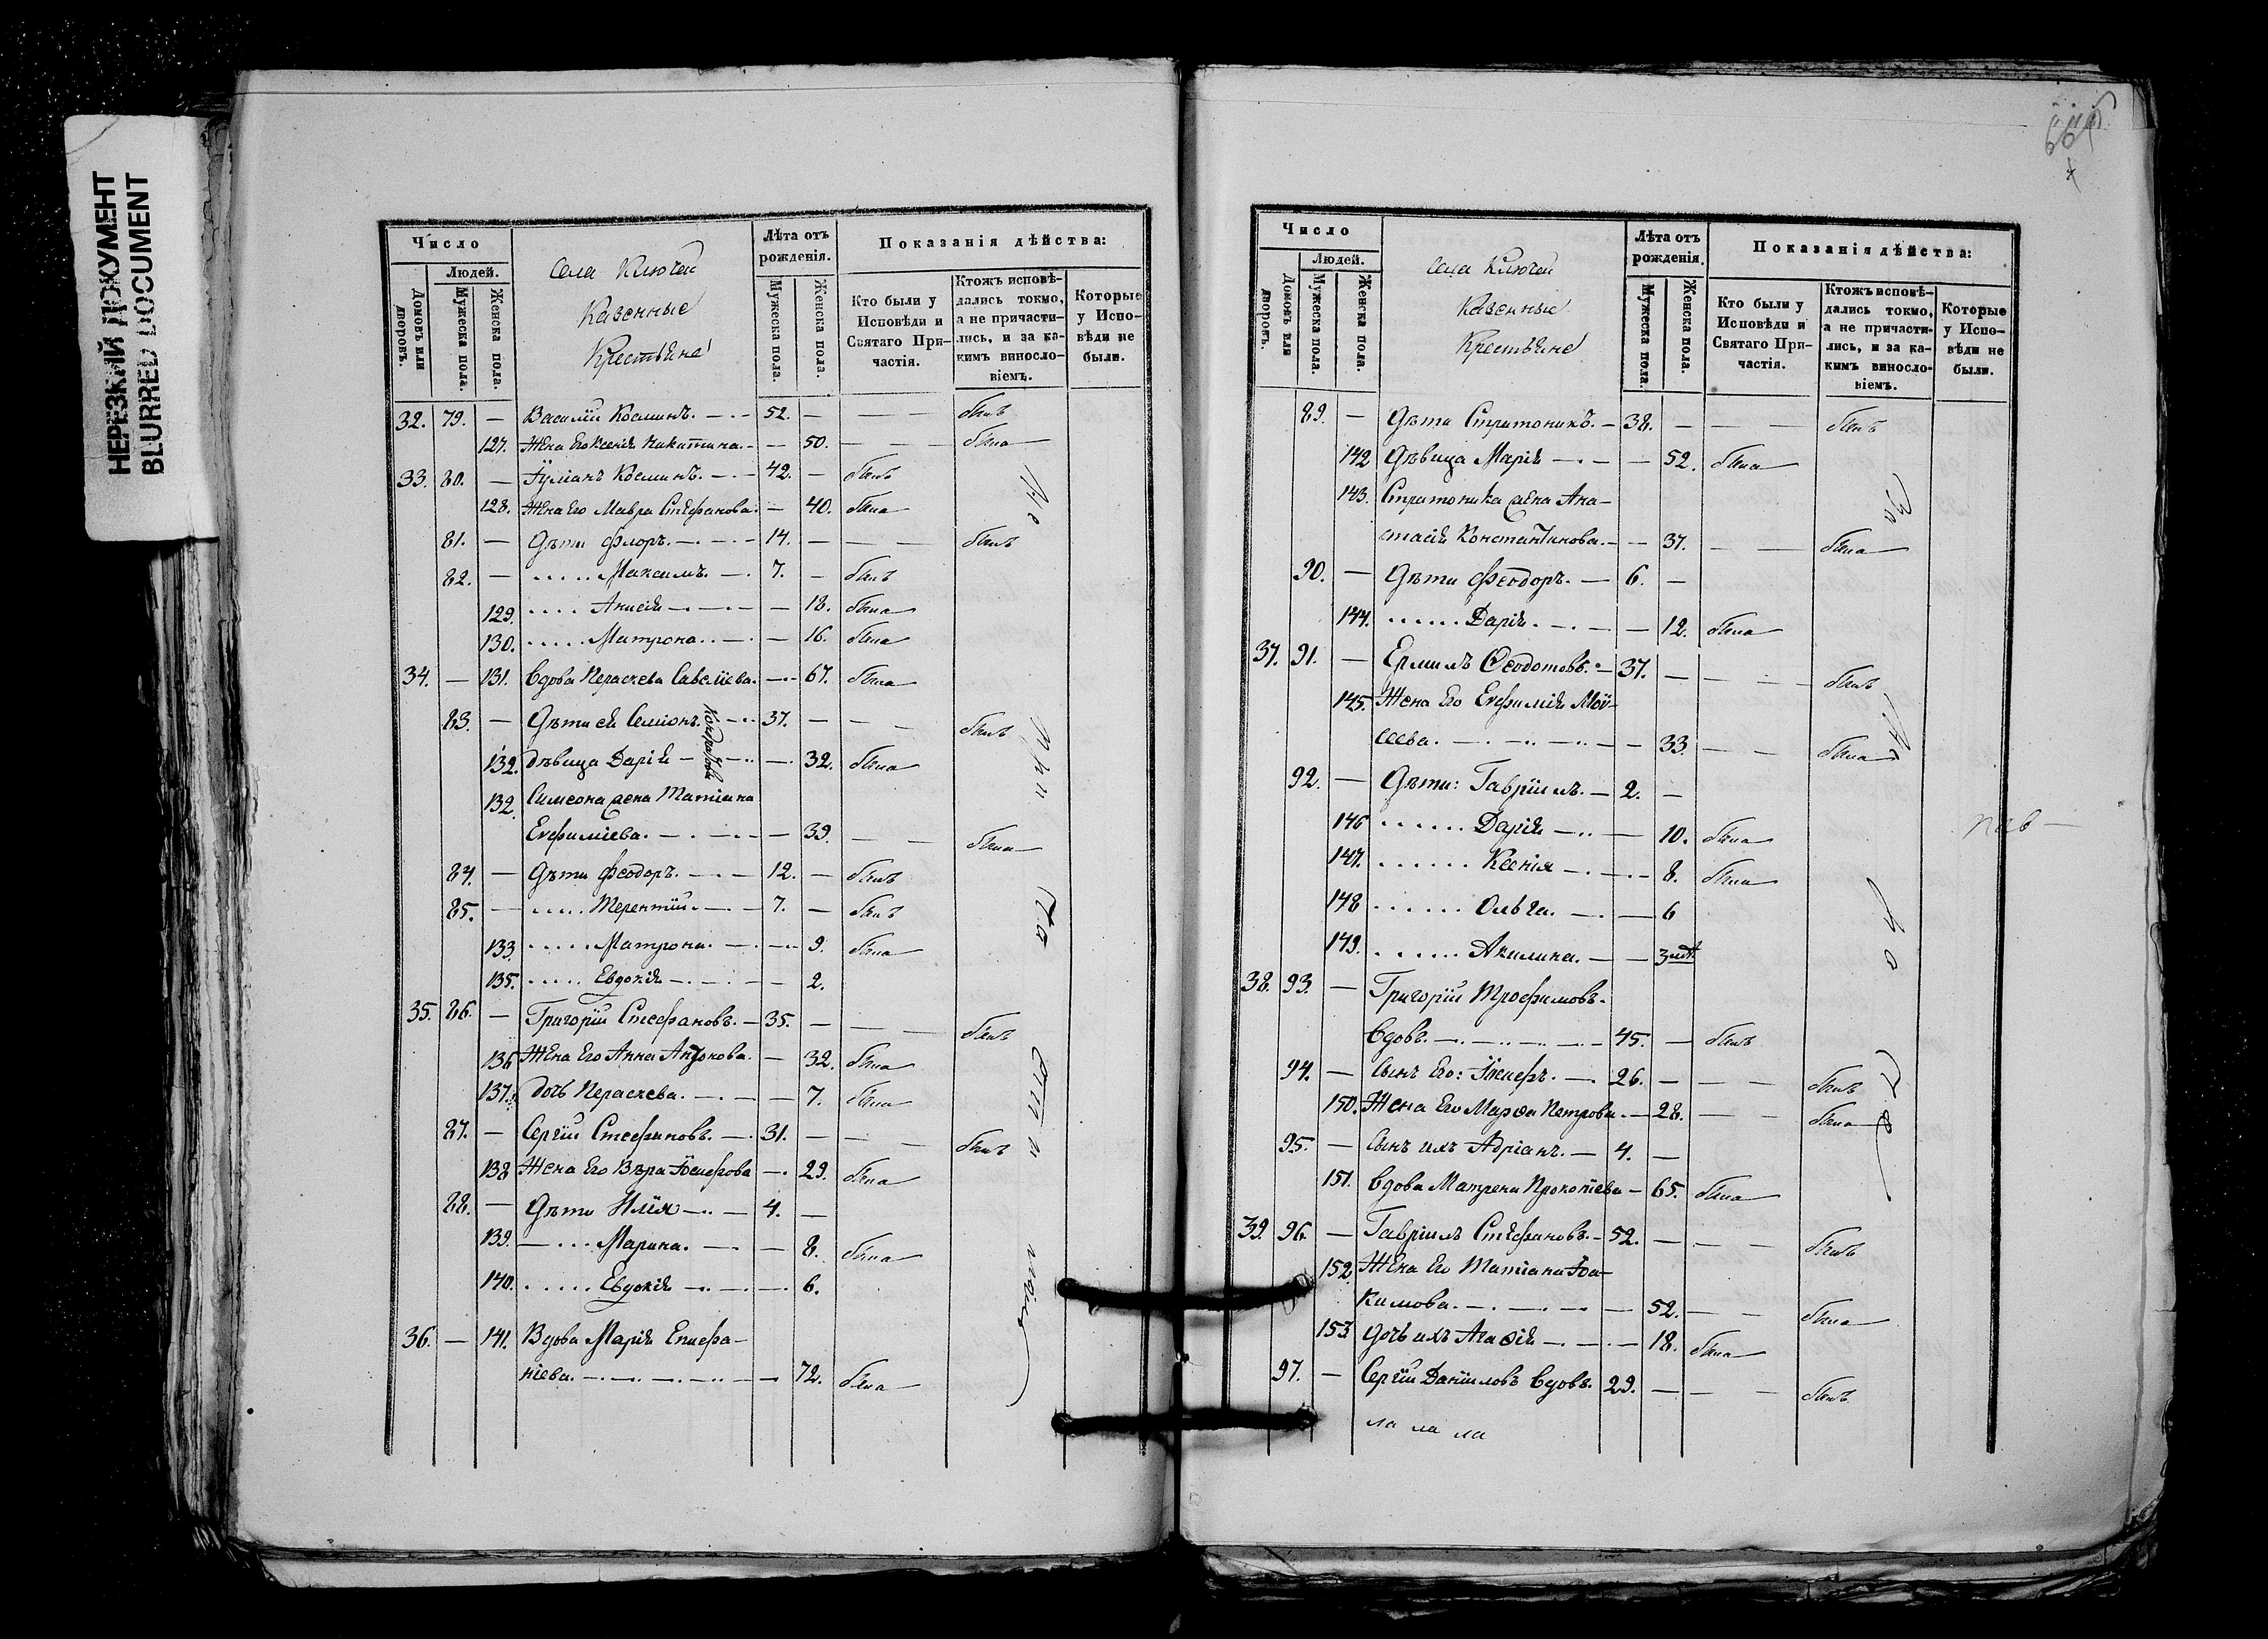 НЕРЕЗКИЙ ДОКУМЕНТ
BLURRED DOCUMENT
Число
Людей.
Домовъ или дворовъ.
Мужеска пола.
Женска пола.
Села Ключей
Казенные
Крестьяне
Лѣта отъ рожденія.
Мужеска пола.
Женска пола.
Показанія дѣйства:
Кто были у Исповѣди и Святаго Причастія.
Ктожъ исповѣдались токмо, а не причастились, и за какимъ винословіемъ.
Которые у Исповѣди не были.
32. 79. — Василій Косминъ. — 52. — — — былъ
127. Жена Его Ксенія Никитина. — — 50. — — была
33. 80. — Іуліанъ Косминъ. — 42. — былъ
128. Жена Его Мавра Стефанова. — 40. была
81. — Дѣти Флоръ. — 14. — — — былъ
82. — ..... Максимъ. — 7. — былъ
129. .... Анисія — — 18. была
130. ..... Матрона. — — 16. была
34. — 131. Вдова Параскева Савеліева. — 67. была
83. — Дѣти ей Семіонъ — 37. — — — былъ
132. дѣвица Дарія — — 32. была
132. Симеона жена Татіана
Евфиміева. — — 39. — — была
84. — Дѣти Феодоръ. — 12. — былъ
85. — ..... Терентій. — 7. — былъ
133. ..... Матрона. — — 9. была
135. ..... Евдокія — — 2.
35. 86. — Григорій Стефановъ. — 35. — — — былъ
136 Жена Его Анна Антонова. — 32. была
137. дочь Параскева. — — 7. была
87. — Сергій Стефановъ. — 31. — — — былъ
138 Жена Его Вѣра Іосифова — 29. была
88. — Дѣти Илія — 4. —
139. — ... Марина. — — 8. была
140. ..... Евдокія — — 6.
36. — 141. Вдова Марія Епифа-
ніева. — — 72. была
Не
при
ча
сти
Число
Людей.
Домовъ или дворовъ.
Мужеска пола.
Женска пола.
Села Ключей
Казенные
Крестьяне
Лѣта отъ рожденія.
Мужеска пола.
Женска пола.
Показанія дѣйства:
Кто были у Исповѣди и Святаго Причастія.
Ктожъ исповѣдались токмо, а не причастились, и за какимъ винословіемъ.
Которые у Исповѣди не были.
89. — Дѣти Стратоникъ. — 38. — — — былъ
142 Дѣвица Марія — — 52. была
143. Стратоника жена Ана-
стасія Константинова. — — 37. — — была
90. — Дѣти Феодоръ. — 6. —
144. ...... Дарія. — — 12. была
37. 91. — Ермилъ Ѳеодотовъ. — 37. — — — былъ
145. Жена Его Евфимія Мои-
сеева. — — 33. — — была
92. — Дѣти: Гавріилъ. — 2. —
146 ...... Дарія — — 10. была
147. ...... Ксенія — — 8. была
148 ...... Ольга. — — 6
149. ...... Акилина. — —
38. 93. — Григорій Трофимовъ.
вдовъ. — 45. — былъ
94. — Сынъ Его: Іосифъ. — 26. — — — былъ
150. Жена Его Марѳа Петрова. — 28. — — была
95. — Сынъ ихъ Адріанъ. — 4. —
151. Вдова Матрена Прокопіева — 65. была
39. 96. — Гавріилъ Стефановъ. — 52. — — — былъ
152. Жена Его Татіана Іоа-
кимова. — — 52. — — была
153. дочь ихъ Агаѳія — — 18. была
97. — Сергій Даніиловъ вдовъ. 29. — — — былъ
ла ла ла
За